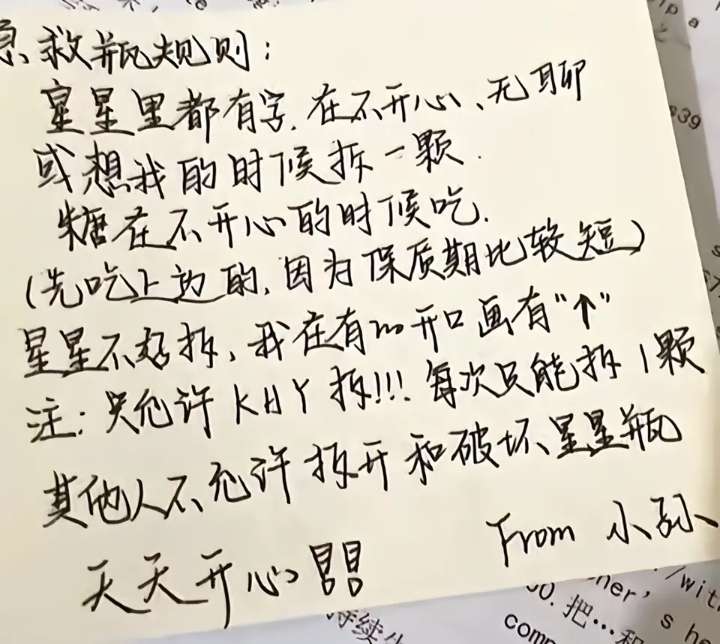 急救瓶规则:
星星里都有字.在不开心、无聊
或想我的时候拆一颗.
糖在不开心的时候吃.
(先吃上边的,因为保质期比较短)
星星不好拆,我在有的开口画有"↑"
注:只允许KHY拆!!!每次只能拆1颗
其他人不允许拆开和破坏星星瓶
天天开心
From 小孙
39
/with
30.把…和
her's he
com
持续